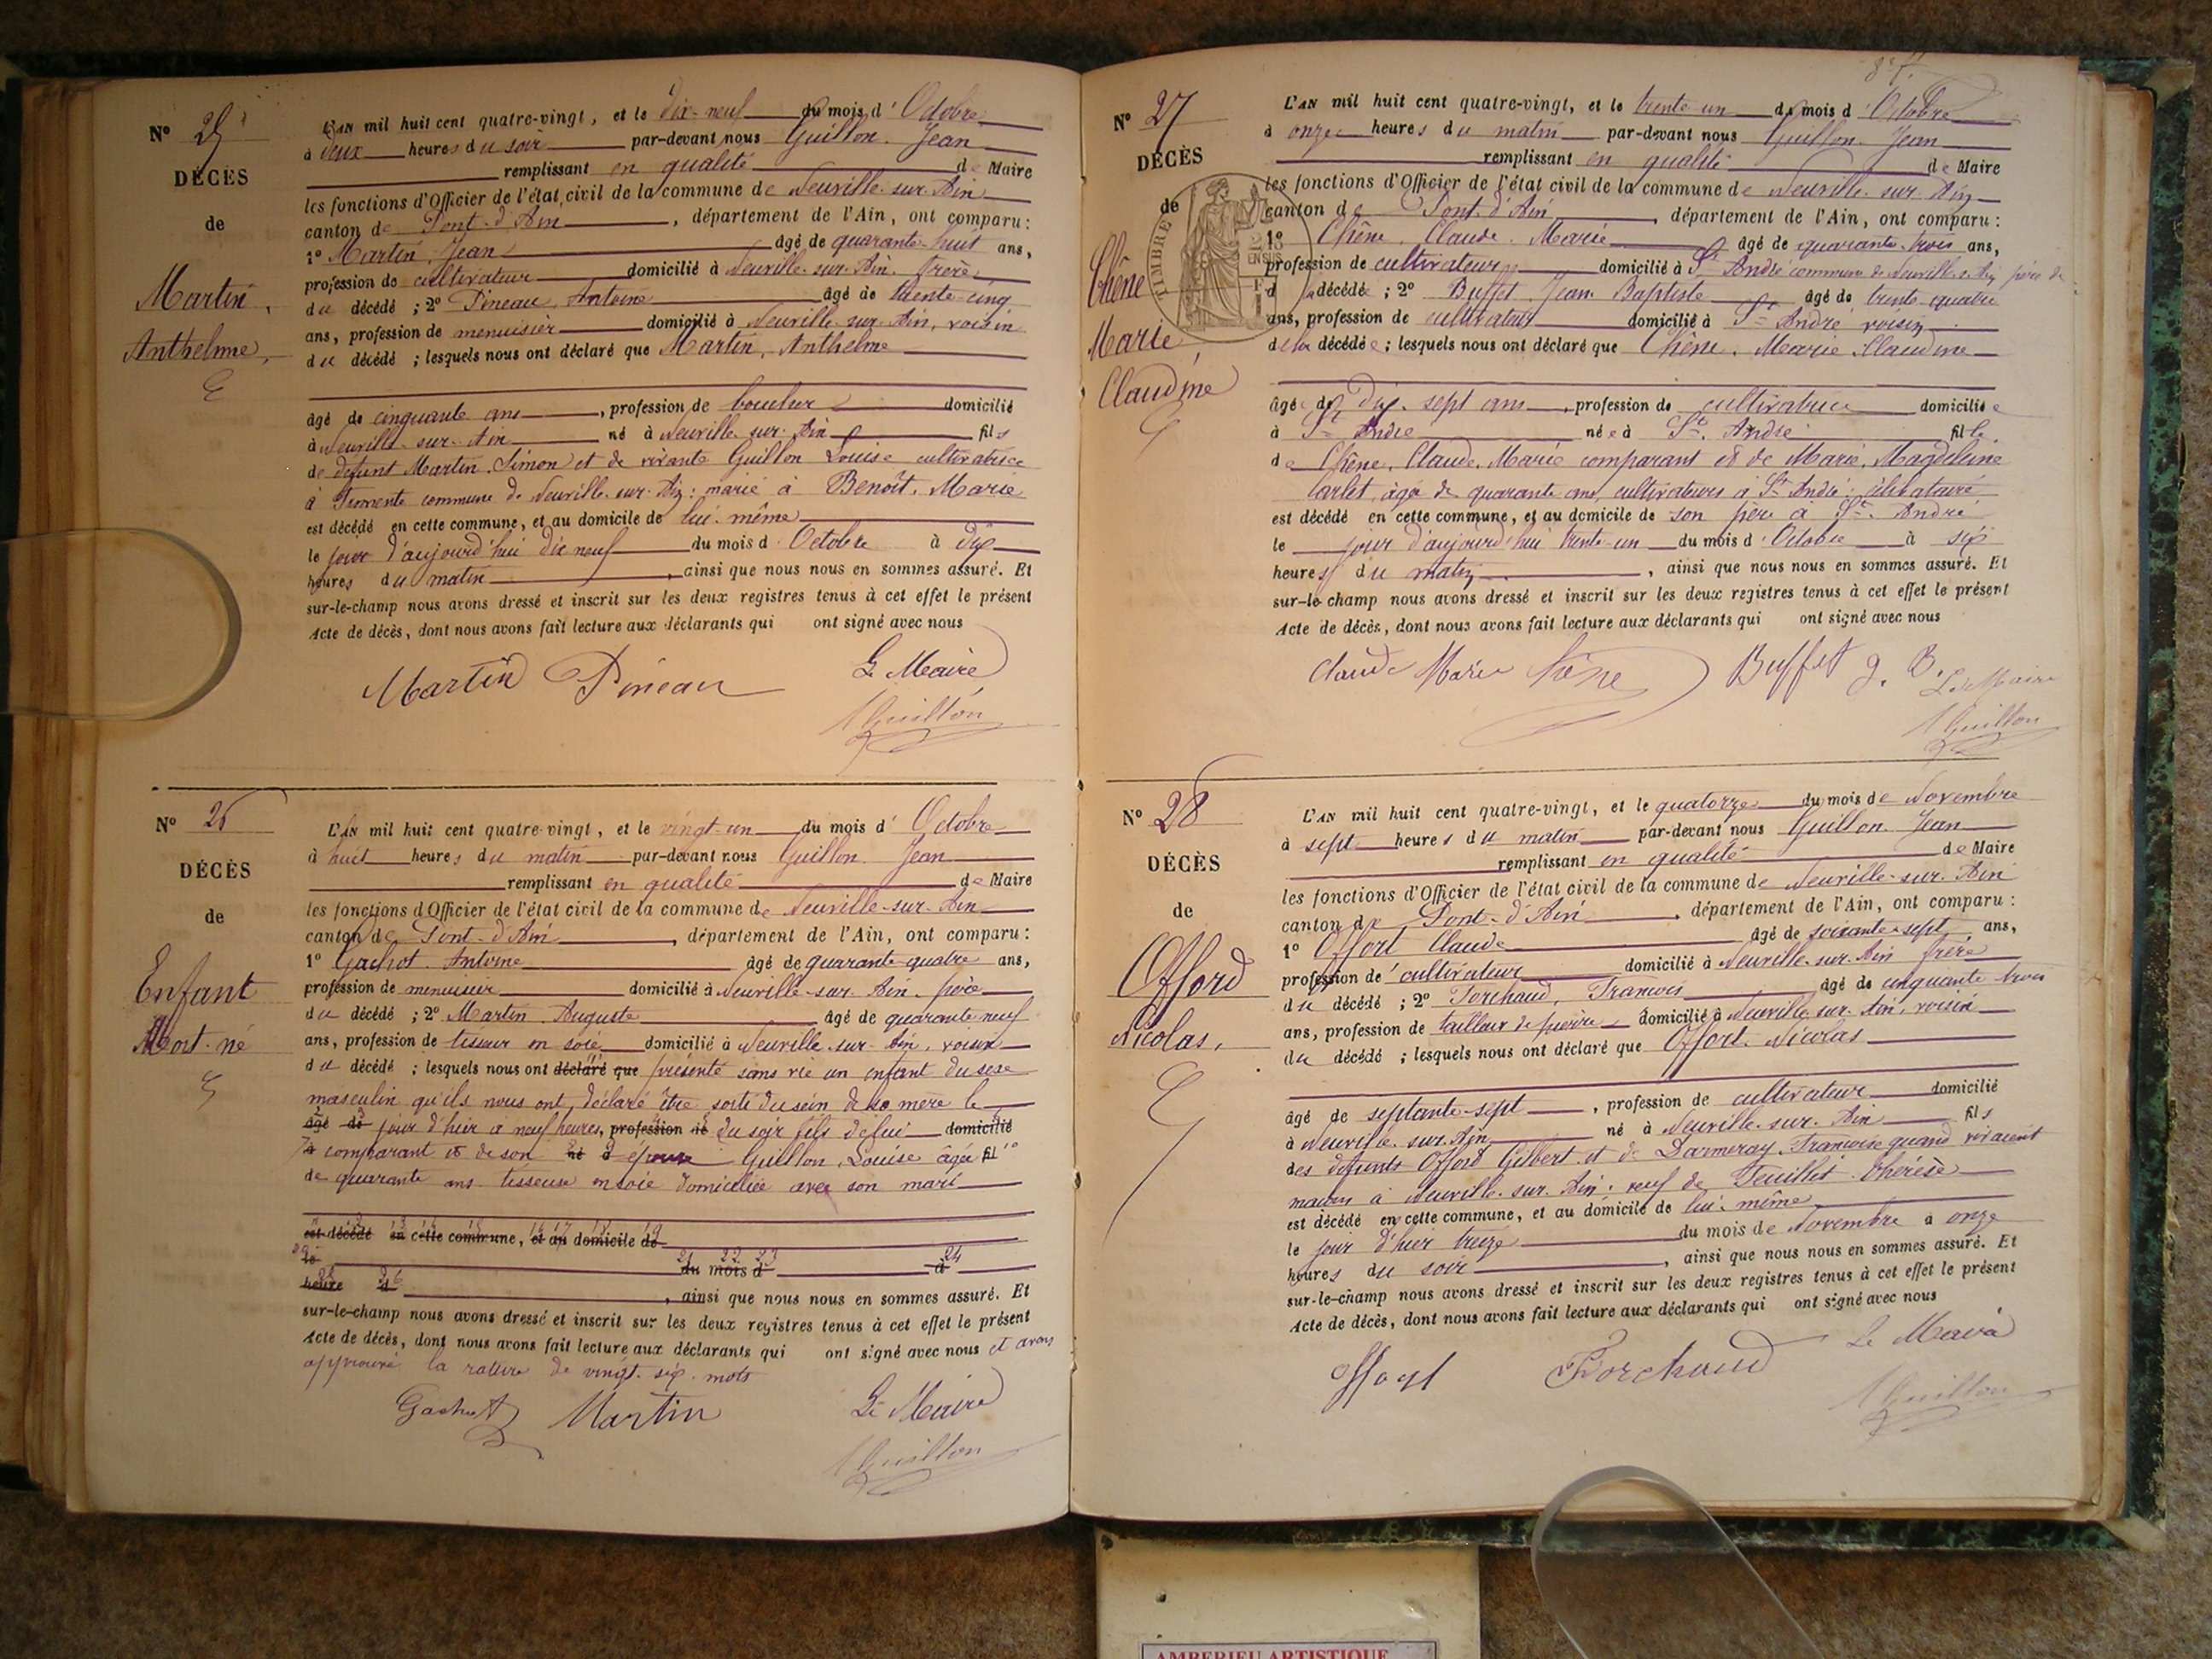 N° 25
DÉCÈS
de
Martin,
Anthelme,
L'AN mil huit cent quatre-vingt, et le dix-neuf du mois d'Octobre
à deux heures du soir par-devant nous Guillon Jean
remplissant en qualité de Maire
les fonctions d'Officier de l'état civil de la commune de Neuville-sur-Ain
canton de Pont-d'Ain, département de l'Ain, ont comparu:
1° Martin, Jean âgé de quarante-huit ans,
profession de cultivateur domicilié à Neuville-sur-Ain, frère
du décédé ; 2° Pineau Antoine âgé de trente-cinq
ans, profession de menuisier domicilié à Neuville-sur-Ain, voisin
du décédé ; lesquels nous ont déclaré que Martin, Anthelme
âgé de cinquante ans, profession de boucher domicilié
à Neuville-sur-Ain né à Neuville-sur-Ain fils
de défunt Martin Simon et de vivante Guillon Louise cultivatrice
à commune de Neuville-sur-Ain: marié à Benoît, Marie
est décédé en cette commune, et au domicile de lui-même
le jour d'aujourd'hui dix neuf du mois d'Octobre à dix
heures du matin, ainsi que nous nous en sommes assuré. Et
sur-le-champ nous avons dressé et inscrit sur les deux registres tenus à cet effet le présent
Acte de décès, dont nous avons fait lecture aux déclarants qui ont signé avec nous
Martin Pineau Le Maire
Guillon
N° 26
DÉCÈS
de
Enfant
Mort-né
L'AN mil huit cent quatre-vingt, et le vingt-un du mois d'Octobre
à huit heures du matin par-devant nous Guillon Jean
remplissant en qualité de Maire
les fonctions d'Officier de l'état civil de la commune de Neuville-sur-Ain
canton de Pont-d'Ain, département de l'Ain, ont comparu:
1° Gachot Antoine âgé de quarante-quatre ans,
profession de menuisier domicilié à Neuville-sur-Ain père
du décédé ; 2° Martin Auguste âgé de quarante neuf
ans, profession de tisseur en soie domicilié à Neuville-sur-Ain, voisin
du décédé ; lesquels nous ont déclaré que présenté sans vie un enfant du sexe
masculin qu'ils nous ont déclaré être sorti du sein de sa mère le
âgé de jour d'hier à neuf heures, profession de du soir fils de lui domicilié
à comparant et de son né à épouse Guillon, Louise âgée fil
de quarante ans tisseuse en soie domiciliée avec son mari
est décédé en cette commune, et au domicile de
le du mois d à
heure d, ainsi que nous nous en sommes assuré. Et
sur-le-champ nous avons dressé et inscrit sur les deux registres tenus à cet effet le présent
Acte de décès, dont nous avons fait lecture aux déclarants qui ont signé avec nous et avons
approuvé la rature de vingt-six mots
Gachot Martin Le Maire
Guillon
N° 27
DÉCÈS
de
Chêne
Marie,
Claudine
L'AN mil huit cent quatre-vingt, et le trente-un du mois d'Octobre
à onze heures du matin par-devant nous Guillon Jean
remplissant en qualité de Maire
les fonctions d'Officier de l'état civil de la commune de Neuville-sur-Ain
canton de Pont-d'Ain, département de l'Ain, ont comparu:
1° Chêne, Claude Marie âgé de quarante-trois ans,
profession de cultivateur domicilié à St André commune de Neuville-s-Ain, père de
la décédée ; 2° Buffet Jean Baptiste âgé de trente-quatre
ans, profession de cultivateur domicilié à St André voisin
de la décédée ; lesquels nous ont déclaré que Chêne, Marie Claudine
âgée de dix-sept ans, profession de cultivatrice domiciliée
à St André née à St André fille
de Chêne, Claude Marie comparant et de Marie, Magdeleine
Carlet, âgée de quarante ans, cultivateurs à St André: célibataire
est décédé en cette commune, et au domicile de son père à St André
le jour d'aujourd'hui trente-un du mois d'Octobre à six
heures du matin, ainsi que nous nous en sommes assuré. Et
sur-le-champ nous avons dressé et inscrit sur les deux registres tenus à cet effet le présent
Acte de décès, dont nous avons fait lecture aux déclarants qui ont signé avec nous
Claude Marie Chêne Buffet J. B. Le Maire
Guillon
TIMBRE
N° 28
DÉCÈS
de
Offord
Nicolas,
L'AN mil huit cent quatre-vingt, et le quatorze du mois de Novembre
à sept heures du matin par-devant nous Guillon Jean
remplissant en qualité de Maire
les fonctions d'Officier de l'état civil de la commune de Neuville-sur-Ain
canton de Pont-d'Ain, département de l'Ain, ont comparu:
1° Offort Claude âgé de soixante-sept ans,
profession de cultivateur domicilié à Neuville-sur-Ain frère
du décédé ; 2° Porchaud, François âgé de cinquante trois
ans, profession de tailleur de pierre domicilié à Neuville-sur-Ain, voisin
du décédé ; lesquels nous ont déclaré que Offort Nicolas
âgé de septante-sept, profession de cultivateur domicilié
à Neuville-sur-Ain né à Neuville-sur-Ain fils
des défunts Offord Gilbert et de Darmeray Françoise quand vivaient
à Neuville-sur-Ain, veuf de Feuillet Thérèse
est décédé en cette commune, et au domicile de lui-même
le jour d'hier treize du mois de Novembre à onze
heures du soir, ainsi que nous nous en sommes assuré. Et
sur-le-champ nous avons dressé et inscrit sur les deux registres tenus à cet effet le présent
Acte de décès, dont nous avons fait lecture aux déclarants qui ont signé avec nous
Offort Porchaud Le Maire
Guillon
AMBERIEU ARTISTIQUE